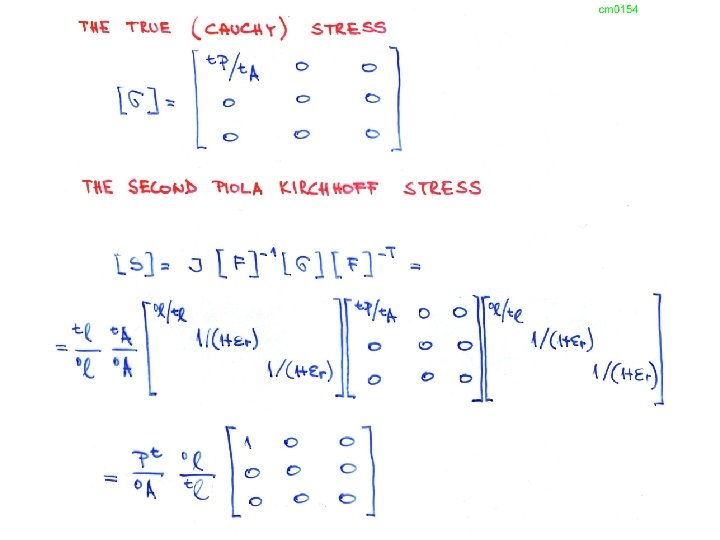 cm0154
THE TRUE (CAUCHY) STRESS
[σ] = [ tP/tA 0 0
0 0 0
0 0 0 ]
THE SECOND PIOLA KIRCHHOFF STRESS
[S] = J [F]⁻¹ [σ] [F]⁻ᵀ =
= tl/0l tA/0A [ 0l/tl 1/(1+εr) 1/(1+εr) ] [ tP/tA 0 0
0 0 0
0 0 0 ] [ 0l/tl 1/(1+εr) 1/(1+εr) ]
= Pt/0A 0l/tl [ 1 0 0
0 0 0
0 0 0 ]